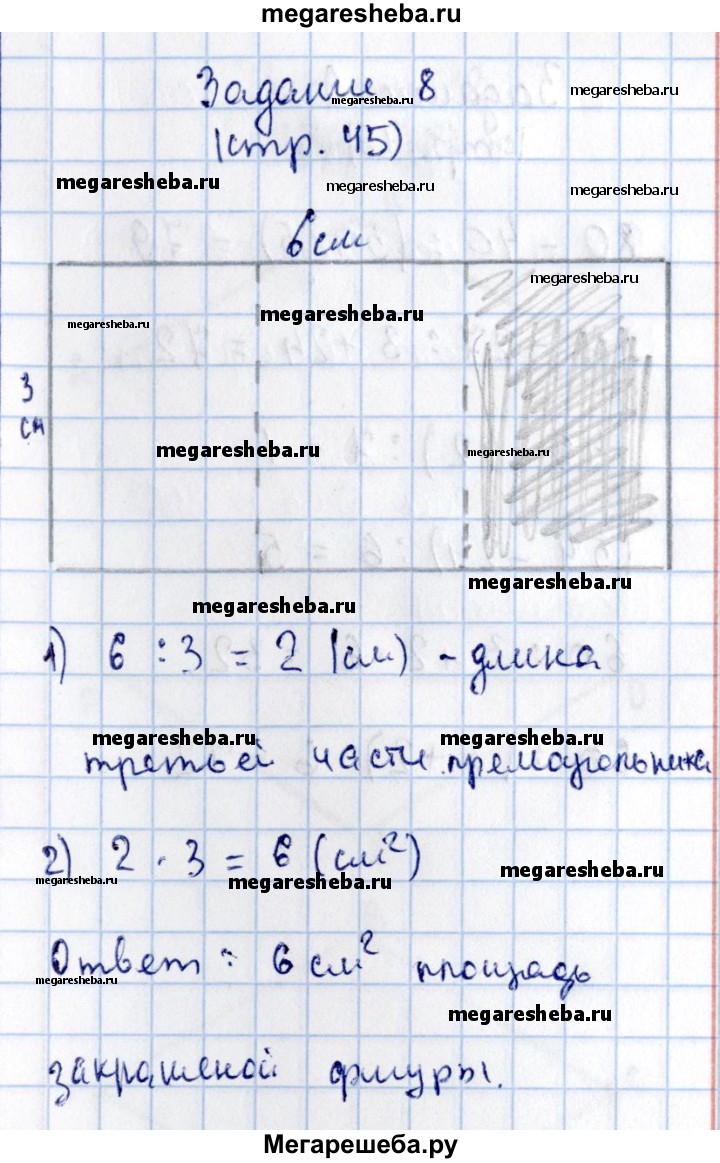 megaresheba.ru
Задание 8
megaresheba.ru
megaresheba.ru
(стр. 45)
megaresheba.ru
megaresheba.ru
megaresheba.ru
6 см
megaresheba.ru
megaresheba.ru
megaresheba.ru
3
см
megaresheba.ru
megaresheba.ru
megaresheba.ru
megaresheba.ru
1) 6 : 3 = 2 (см) - длина
megaresheba.ru
megaresheba.ru
третьей части прямоугольника
2) 2 · 3 = 6 (см²)
megaresheba.ru
megaresheba.ru
megaresheba.ru
Ответ: 6 см² площадь
megaresheba.ru
megaresheba.ru
закрашеной фигуры.
Мегарешеба.ру